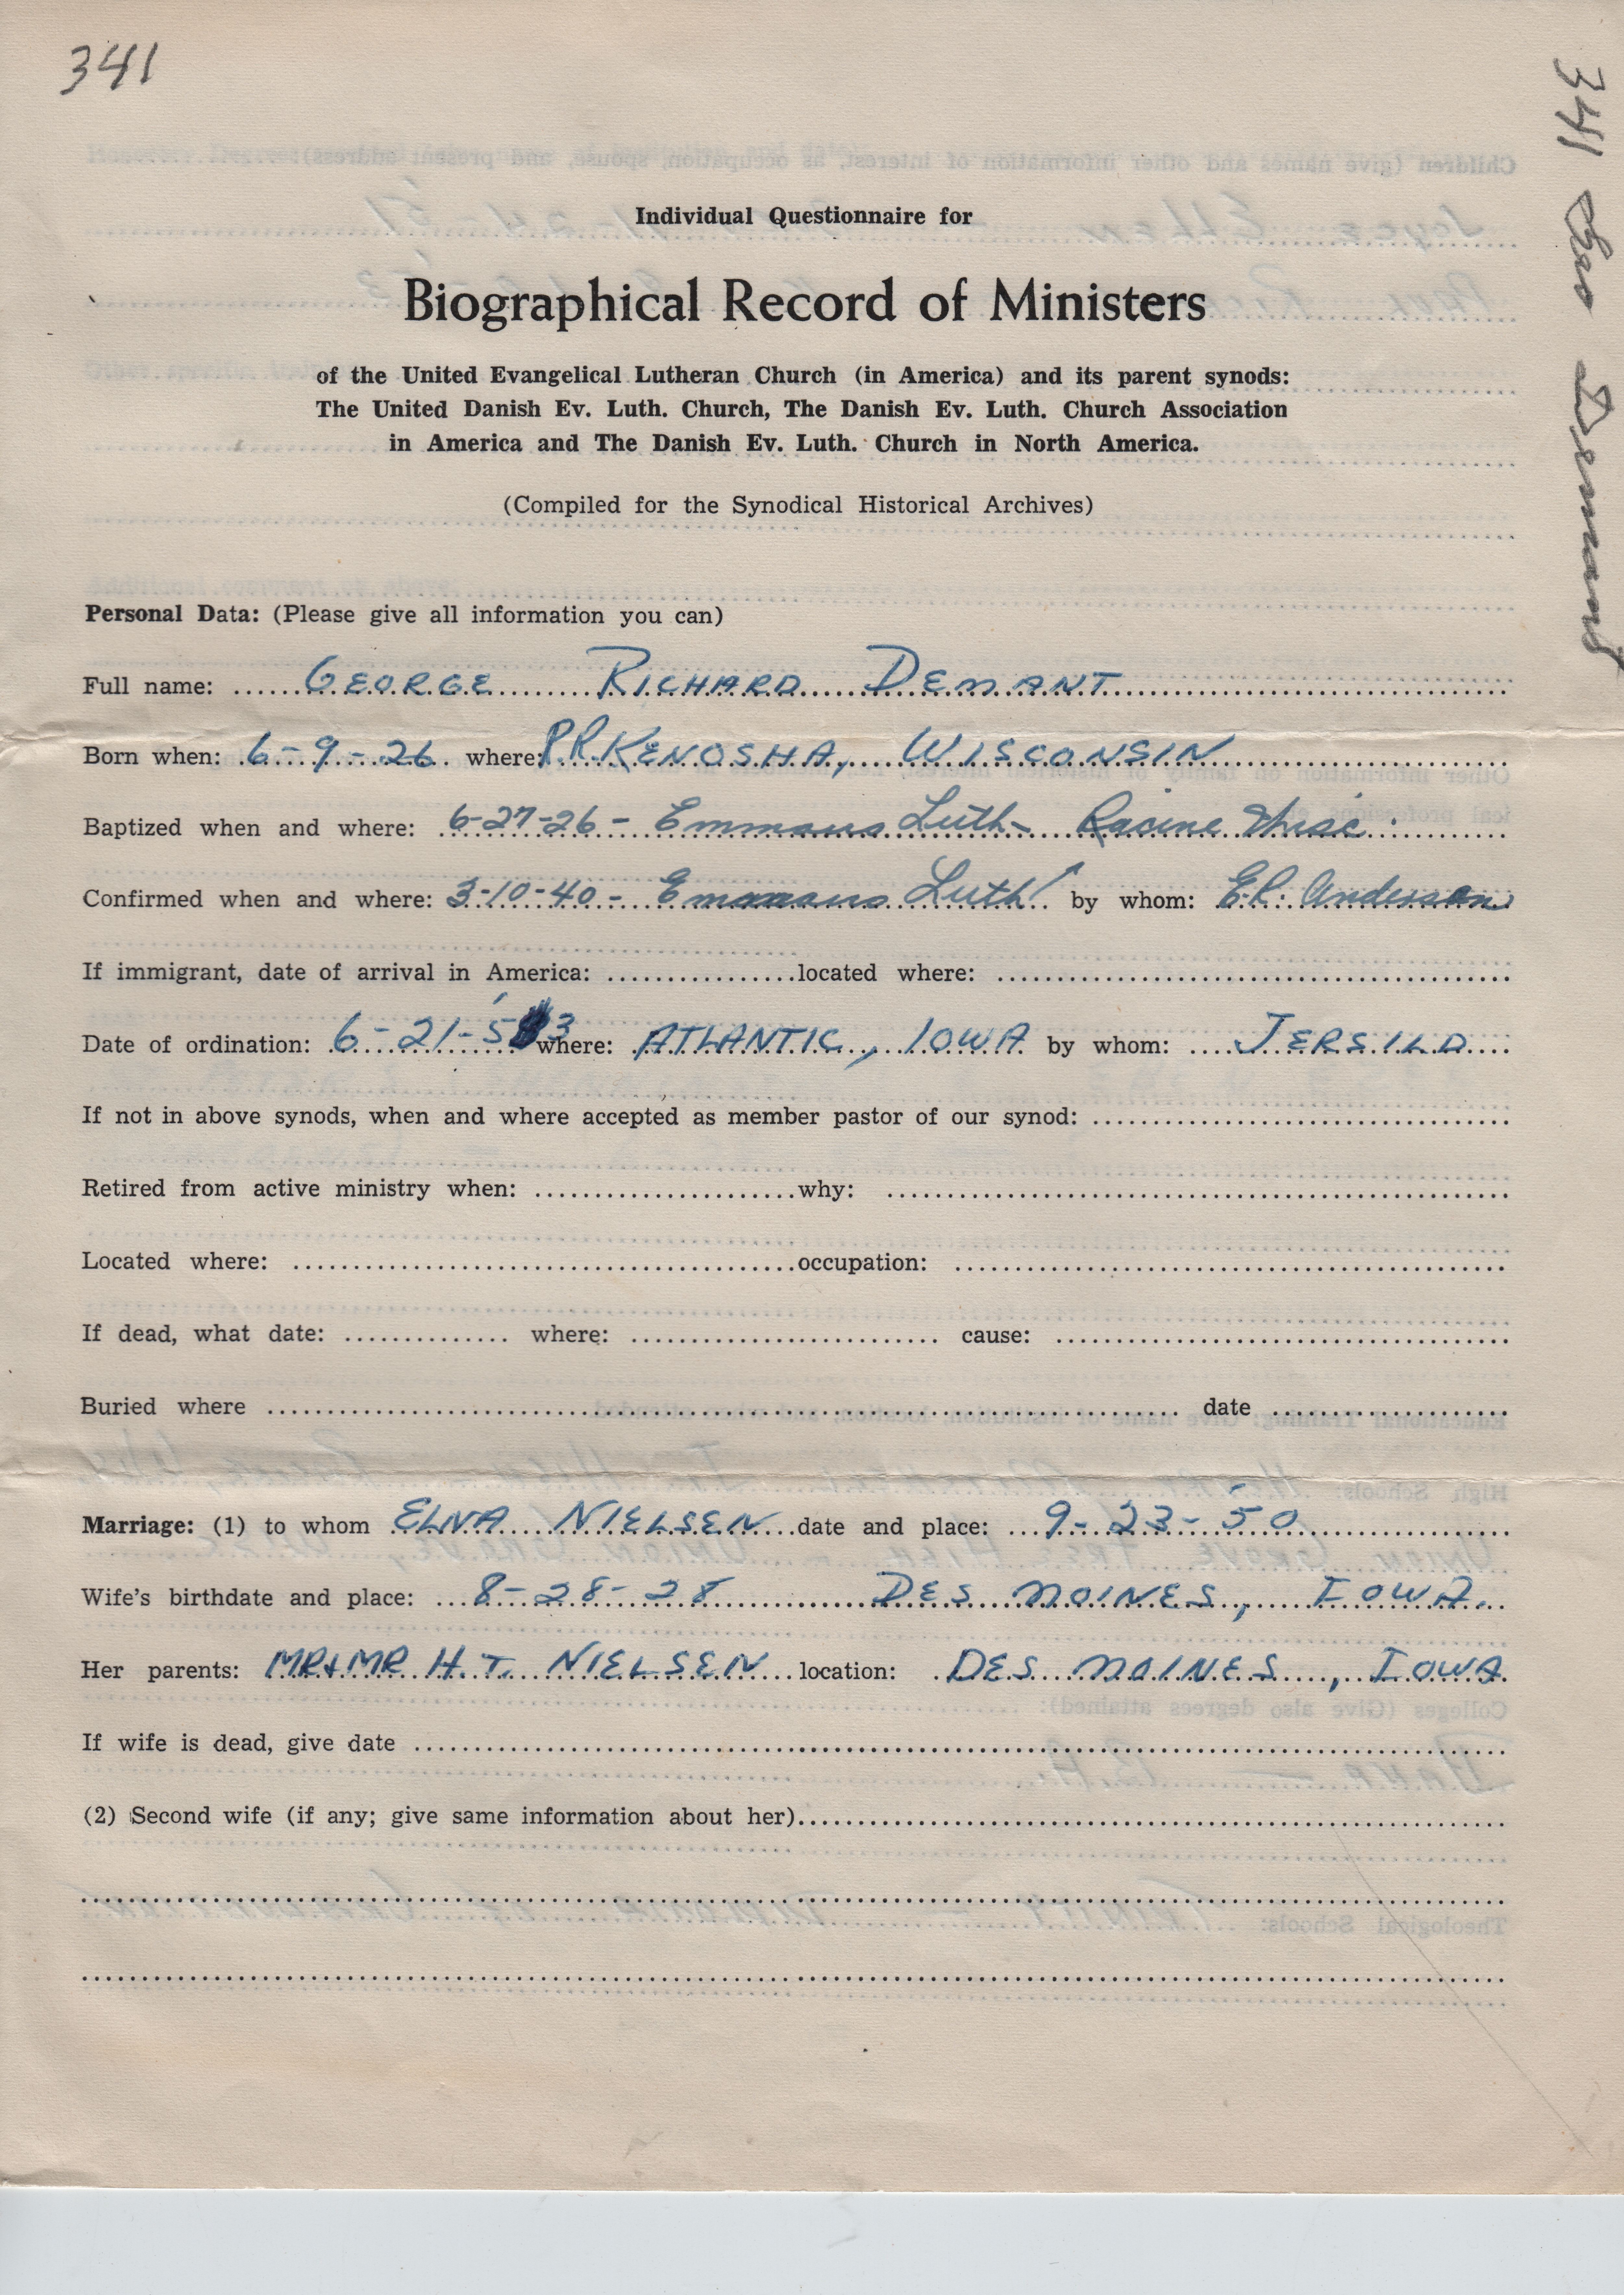 341
341 Geo Demant
Individual Questionnaire for
Biographical Record of Ministers
of the United Evangelical Lutheran Church (in America) and its parent synods:
The United Danish Ev. Luth. Church, The Danish Ev. Luth. Church Association
in America and The Danish Ev. Luth. Church in North America.
(Compiled for the Synodical Historical Archives)
Personal Data: (Please give all information you can)
Full name: GEORGE RICHARD DEMANT
Born when: 6-9-26 where: RR. KENOSHA, WISCONSIN
Baptized when and where: 6-27-26 - Emmaus Luth- Racine Wisc.
Confirmed when and where: 3-10-40 - Emmaus Luth. by whom: E.R. Anderson
If immigrant, date of arrival in America: located where:
Date of ordination: 6-21-'53 where: ATLANTIC, IOWA by whom: JERSILD
If not in above synods, when and where accepted as member pastor of our synod:
Retired from active ministry when: why:
Located where: occupation:
If dead, what date: where: cause:
Buried where date
Marriage: (1) to whom ELNA NIELSEN date and place: 9-23-'50
Wife's birthdate and place: 8-28-28 DES MOINES, IOWA.
Her parents: MR+MR H.T. NIELSEN location: DES MOINES, IOWA
If wife is dead, give date
(2) Second wife (if any; give same information about her)